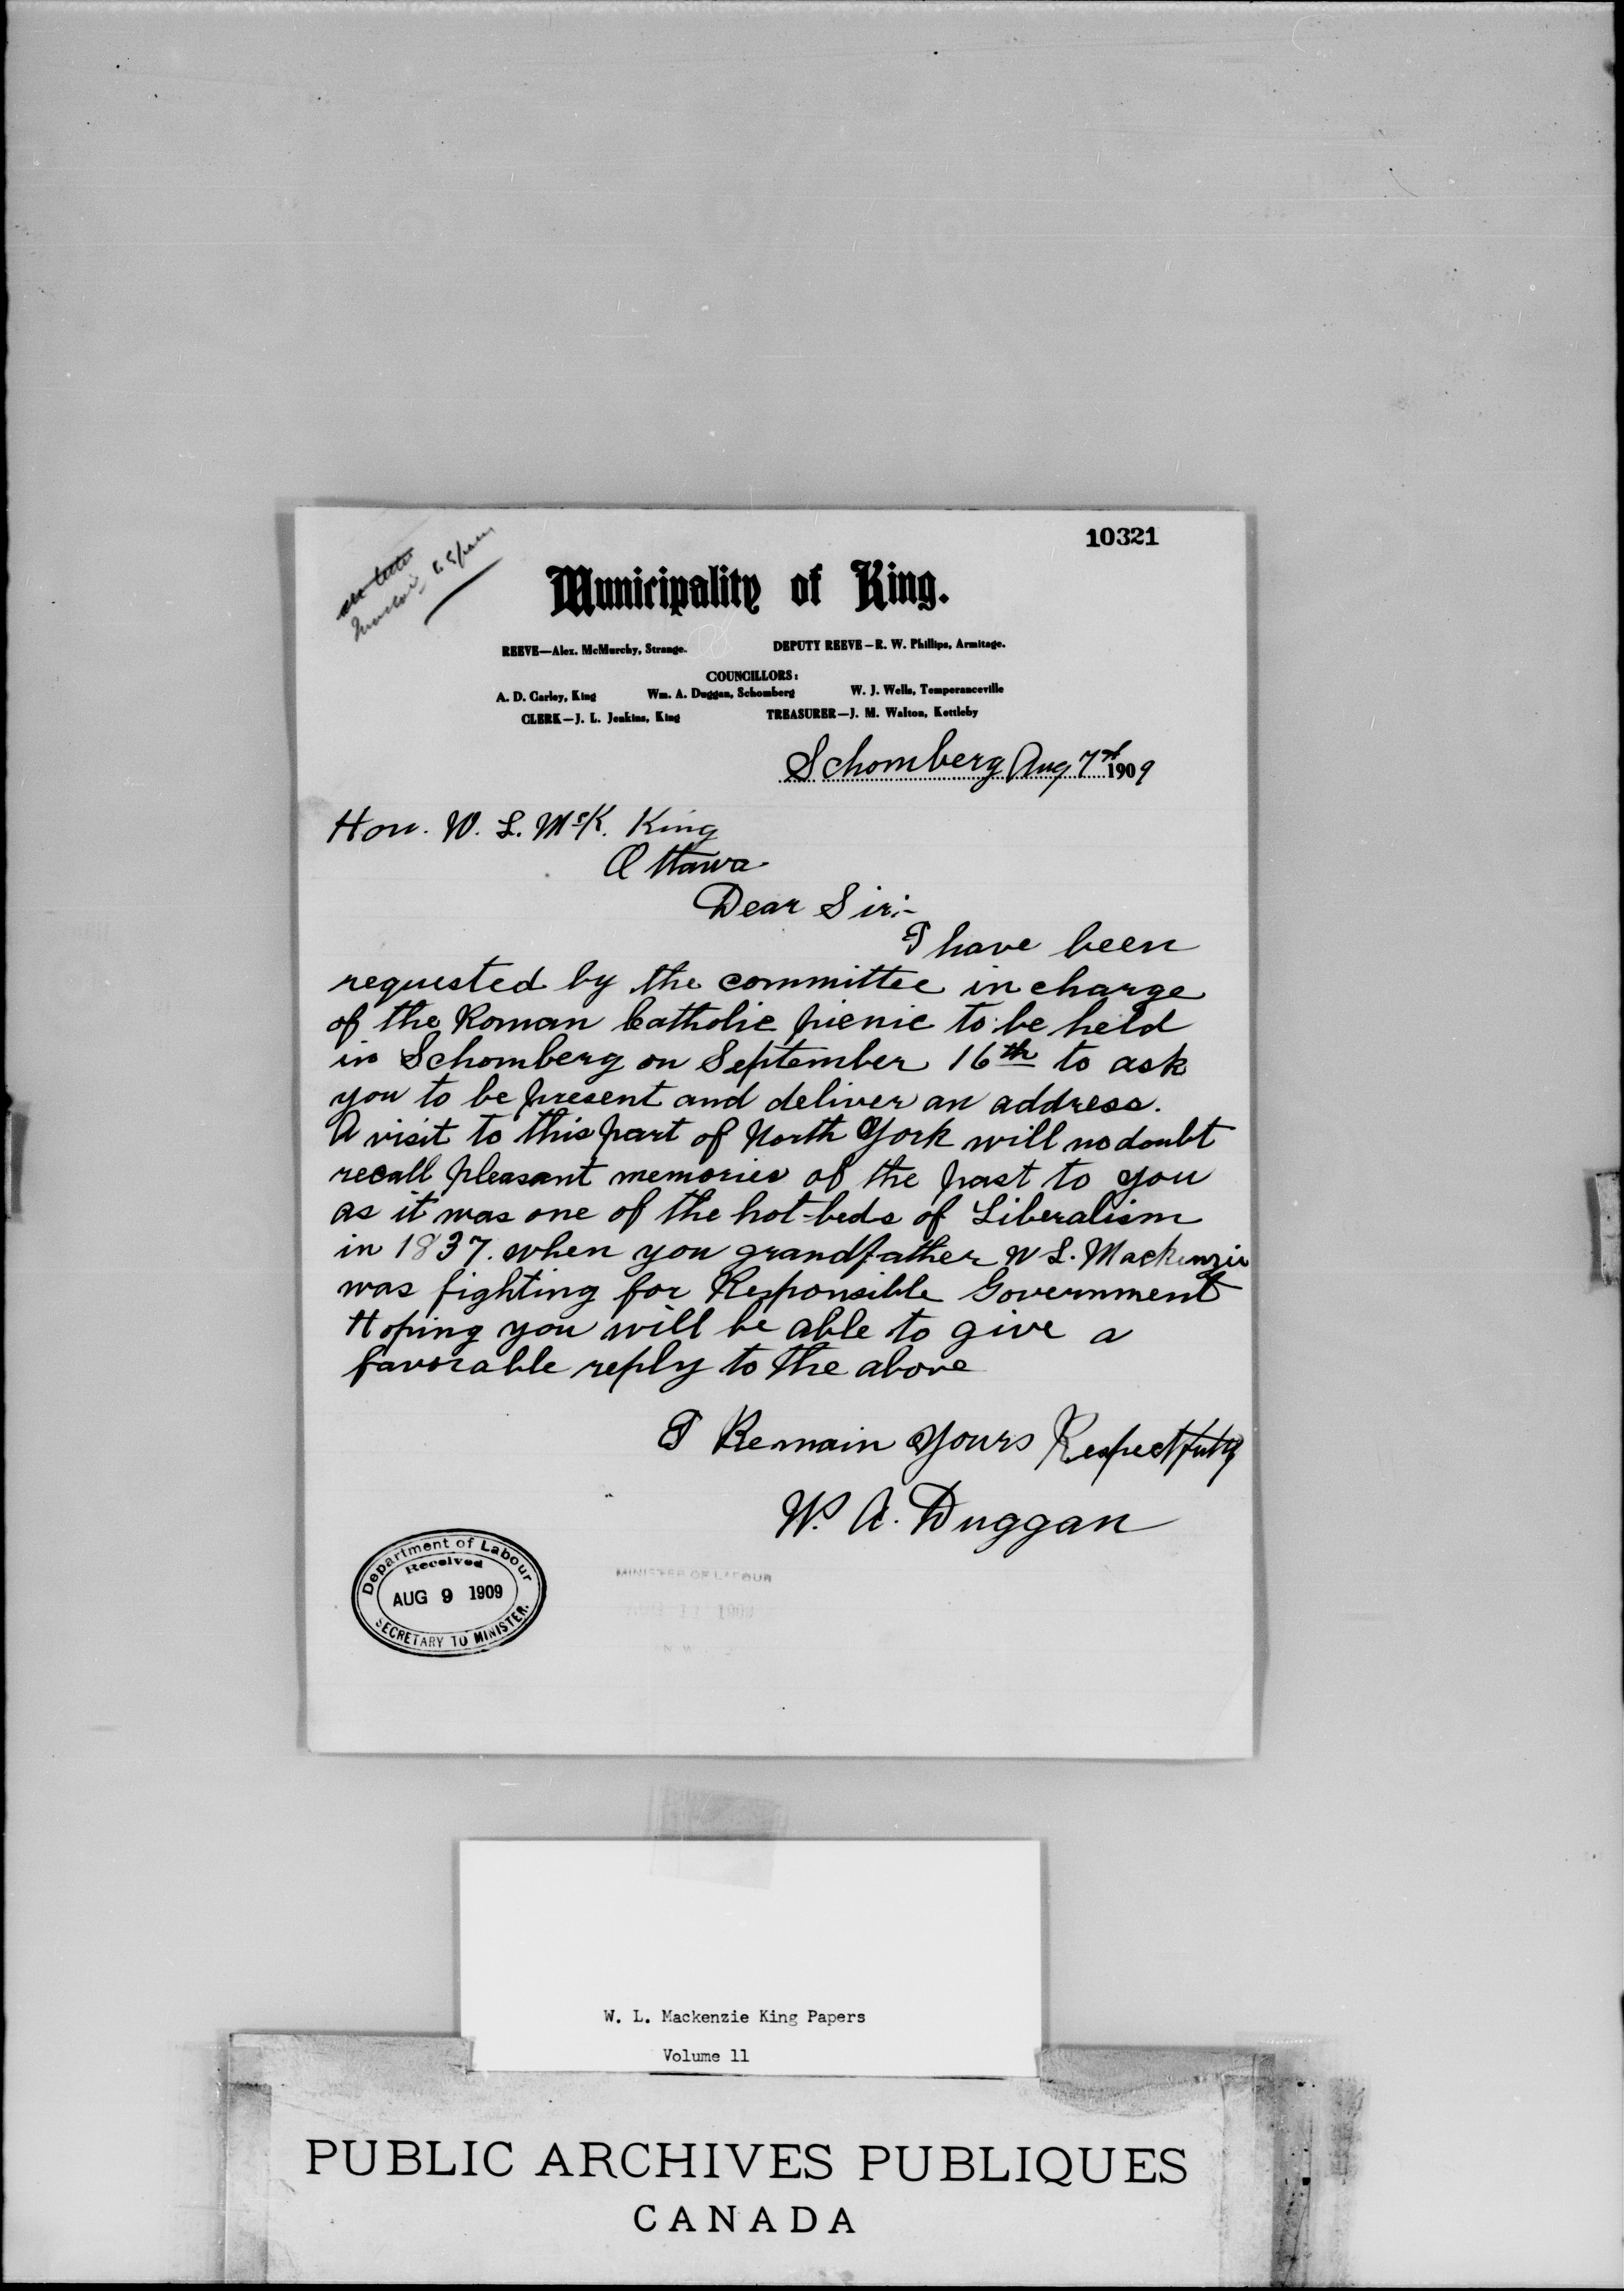 10321
Municipality of King.
REEVE—Alex. McMurchy, Strange.
DEPUTY REEVE—R. W. Phillips, Armitage.
COUNCILLORS:
A. D. Carley, King Wm. A. Duggan, Schomberg W. J. Wells, Temperanceville
CLERK—J. L. Jenkins, King TREASURER—J. M. Walton, Kettleby
Schomberg Aug 7th 1909
Hon. W. L. McK. King
Ottawa
Dear Sir:-
I have been
requested by the committee in charge
of the Roman Catholic picnic to be held
in Schomberg on September 16th to ask
you to be present and deliver an address.
A visit to this part of North York will no doubt
recall pleasant memories of the past to you
as it was one of the hot-beds of Liberalism
in 1837. when you grandfather W L. Mackenzie
was fighting for Responsible Government
Hoping you will be able to give a
favorable reply to the above
I Remain Yours Respectfully
W. A. Duggan
Department of Labour
Received
AUG 9 1909
SECRETARY TO MINISTER.
MINISTER OF LABOUR
W. L. Mackenzie King Papers
Volume 11
PUBLIC ARCHIVES PUBLIQUES
CANADA